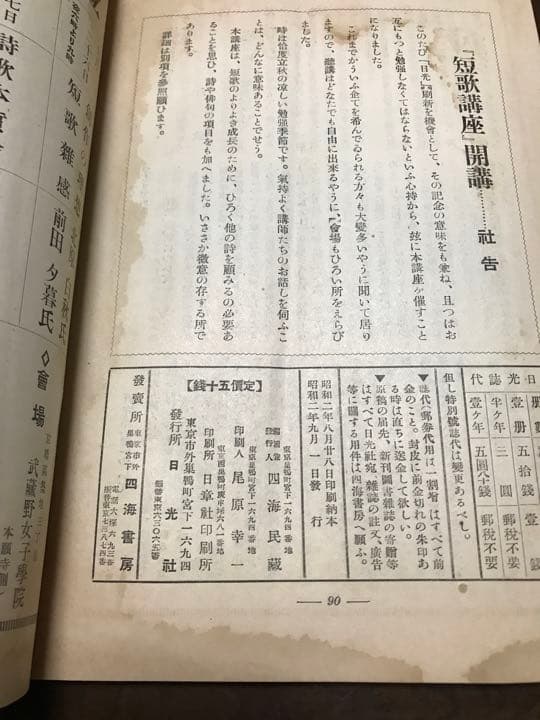 『短歌講座』開講………社告
このたび『日光』刷新を機會として、その記念の意味をも兼ね、且つはお
互にもつと勉強しなくてはならないといふ心持から、玆に本講座を催すこと
になりました。
これまでかういふ企てを希んでゐられる方々も大變多いやうに聞いて居り
ますので、聽講はどなたでも自由に出來るやうに、會場もひろい所をえらび
ました。
時は恰度立秋の凉しい勉強季節です。氣持よく講師たちのお話しを伺ふこ
とは、どんなに意味あることでせう。
本講座は、短歌のよりよき成長のために、ひろく他の詩を顧みるの必要あ
ることを思ひ、詩や俳句の項目をも加へました。いささか微意の存する所で
あります。
詳細は別項を參照願ひます。
日光誌代
壹册 五拾錢
半ケ年 三圓 郵稅不要
壹ケ年 五圓八十錢 郵稅不要
但し特別號誌代は變更あるべし。
▼誌代(郵券代用は一割增)はすべて前
金のこと。封皮に前金切れの朱印あ
る時は直ちに送金して欲しい。
▼原稿の届先、新刊圖書雜誌の寄贈等
はすべて日光社宛、雜誌の註文、廣告
等に關する用件は四海書房へ願ふ。
昭和二年八月廿八日印刷納本
昭和二年九月一日發行
【定價五十錢】
東京巢鴨町宮下一六九四番地
發行人 四海民藏
印刷人 尾原幸一
印刷所 日章社印刷所
東京市外巢鴨町宮下一六九四
發行所 日光社
振替東京六三〇六五番
發賣所 東京市外巢鴨宮下 四海書房
電話大塚六九三番
振替東京七三八七四番
— 90 —
短歌雜感 前田夕暮氏
七日
詩歌
◇會場
武藏野女子學院
本願寺側